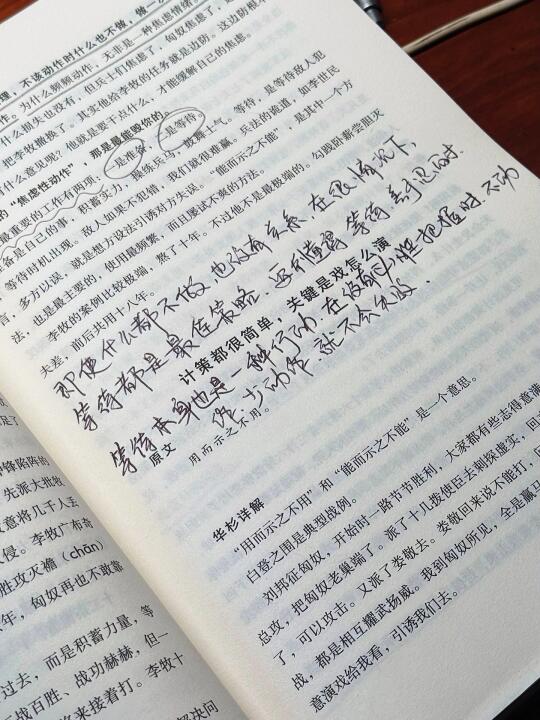 理，不该动作时什么也不做，做一
作。为什么频频动作，无非是一种焦虑情绪。
什么损失也没有，但兵士们焦虑了，匈奴焦虑了，
把李牧撤换了。其实他给李牧的任务就是边防。这边防根本
有什么意见呢？他就是要干点什么，才能缓解自己的焦虑。
的“焦虑性动作”，那是最能毁你的。
最重要的工作有两项，一是准备，二是等待。
备是自己的事，积蓄实力，训练兵马，鼓舞士气。等待，是等待敌人犯
，等待时机出现。敌人如果不犯错，我们就很难赢。兵法的诡道，如李世民
言，多方以误，就是想方设法引诱对方失误。“能而示之不能”，是其中一个方
法，也是最主要的、使用最频繁，而且屡试不爽的方法。
李牧的案例比较极端，熬了十年。不过他不是最极端的。勾践卧薪尝胆灭
夫差，前后共用十八年。
即使什么都不做，也没有关系，在很多情况下，
等待都是最佳策略。
等待本身也是一种行动，在没有
就不会失败．
计策都很简单，关键是戏怎么演
原文
用而示之不用。
华杉详解
“用而示之不用”和“能而示之不能”是一个意思。
白登之围是典型战例。
刘邦征匈奴，开始时一路节节胜利，大家都有些志得意满
总攻，把匈奴老巢端了。派了十几拨使臣去刺探虚实，回
了，可以攻击。又派了娄敬去。娄敬回来说不能打，
战，都是相互耀武扬威。我到匈奴所见，全是羸马
意演戏给我看，引诱我们去。
锋陷阵的
先派大批牧
故意将几千人丢
入侵。李牧广布奇
胜攻灭襜（chān）
年，匈奴再也不敢靠
过去，而是积蓄力量，等
战百胜、战功赫赫，但一
将来接着打。李牧十
解决问